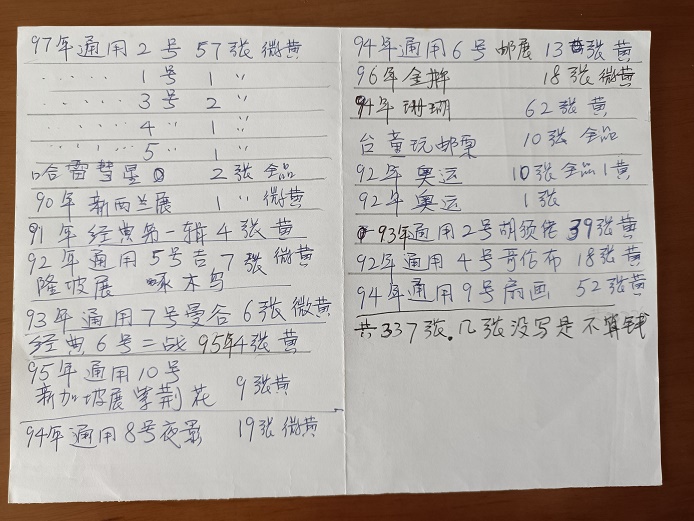 97年通用2号 57张 微黄
····· 1号 1 〃
····· 3号 2 〃
····· 4〃 1 〃
····· 5〃 1 〃
哈雷彗星 2张 全品
90年 新西兰展 1〃 微黄
91年经典第一辑 4张 黄
92年通用5号吉 7张 微黄
隆坡展 啄木鸟
93年通用7号曼谷 6张 微黄
经典6号二战 95年4张 黄
95年通用10号
新加坡展紫荆花 9张黄
94年通用8号夜景 19张 微黄
94年通用6号 邮展 13张 黄
96年金牌 18张 微黄
94年珊瑚 62张 黄
台童玩邮票 10张 全品
92年奥运 10张全品1黄
92年奥运 1张
93年通用2号胡须佬 39张黄
92年通用4号哥伦布 18张黄
94年通用9号扇画 52张黄
共337张.几张没写是不算钱